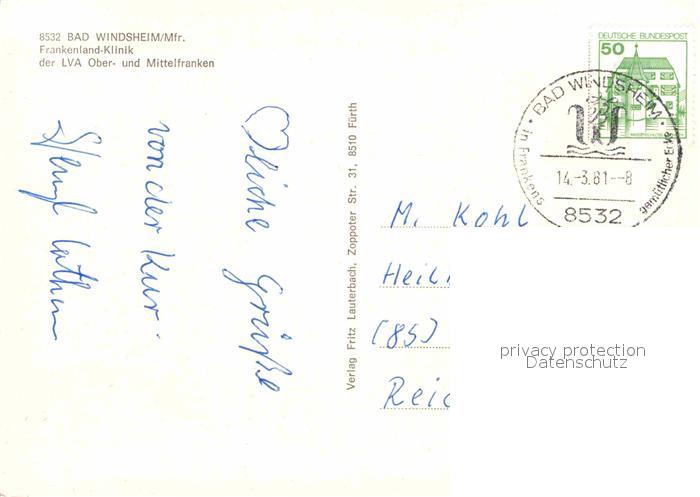 8532 BAD WINDSHEIM/Mfr.
Frankenland-Klinik
der LVA Ober- und Mittelfranken
♡liche Grüße
von der Kur.
Verlag Fritz Lauterbach, Zoppoter Str. 31, 8510 Fürth
DEUTSCHE BUNDESPOST
50
BAD WINDSHEIM
in Frankens gemütlicher Ecke
14.-3.81--8
8532
M. Kohl
Heil
(85)
Reic
privacy protection
Datenschutz